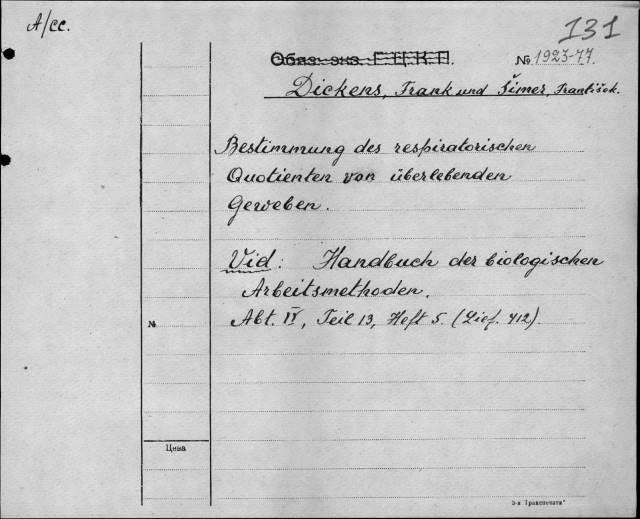 A/cc.
131
Обяз. экз. Г.Ц.К.П.
№ 1923-77.
Dickens, Frank und Šimer, František.
Bestimmung des respiratorischen
Quotienten von überlebenden
Geweben.
Vid: Handbuch der biologischen
Arbeitsmethoden.
Abt. IV, Teil 13, Heft 5. (Lief. 412).
№
Цена
"Транспечати"